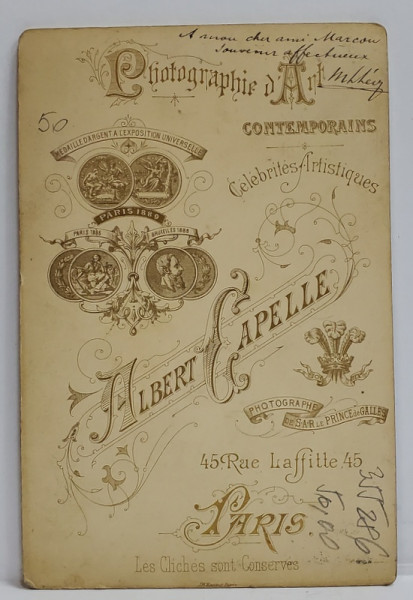 A mon cher ami Marcou
Souvenir affectueux
Photographie d'Art
50
CONTEMPORAINS
MEDAILLE D'ARGENT A L'EXPOSITION UNIVERSELLE
Célébrités Artistiques
PARIS 1889
PARIS 1888
BRUXELLES 1888
ALBERT CAPELLE
PHOTOGRAPHE
DE S.A.R. LE PRINCE DE GALLES
45 Rue Laffitte 45
PARIS.
Les Clichés sont Conservés